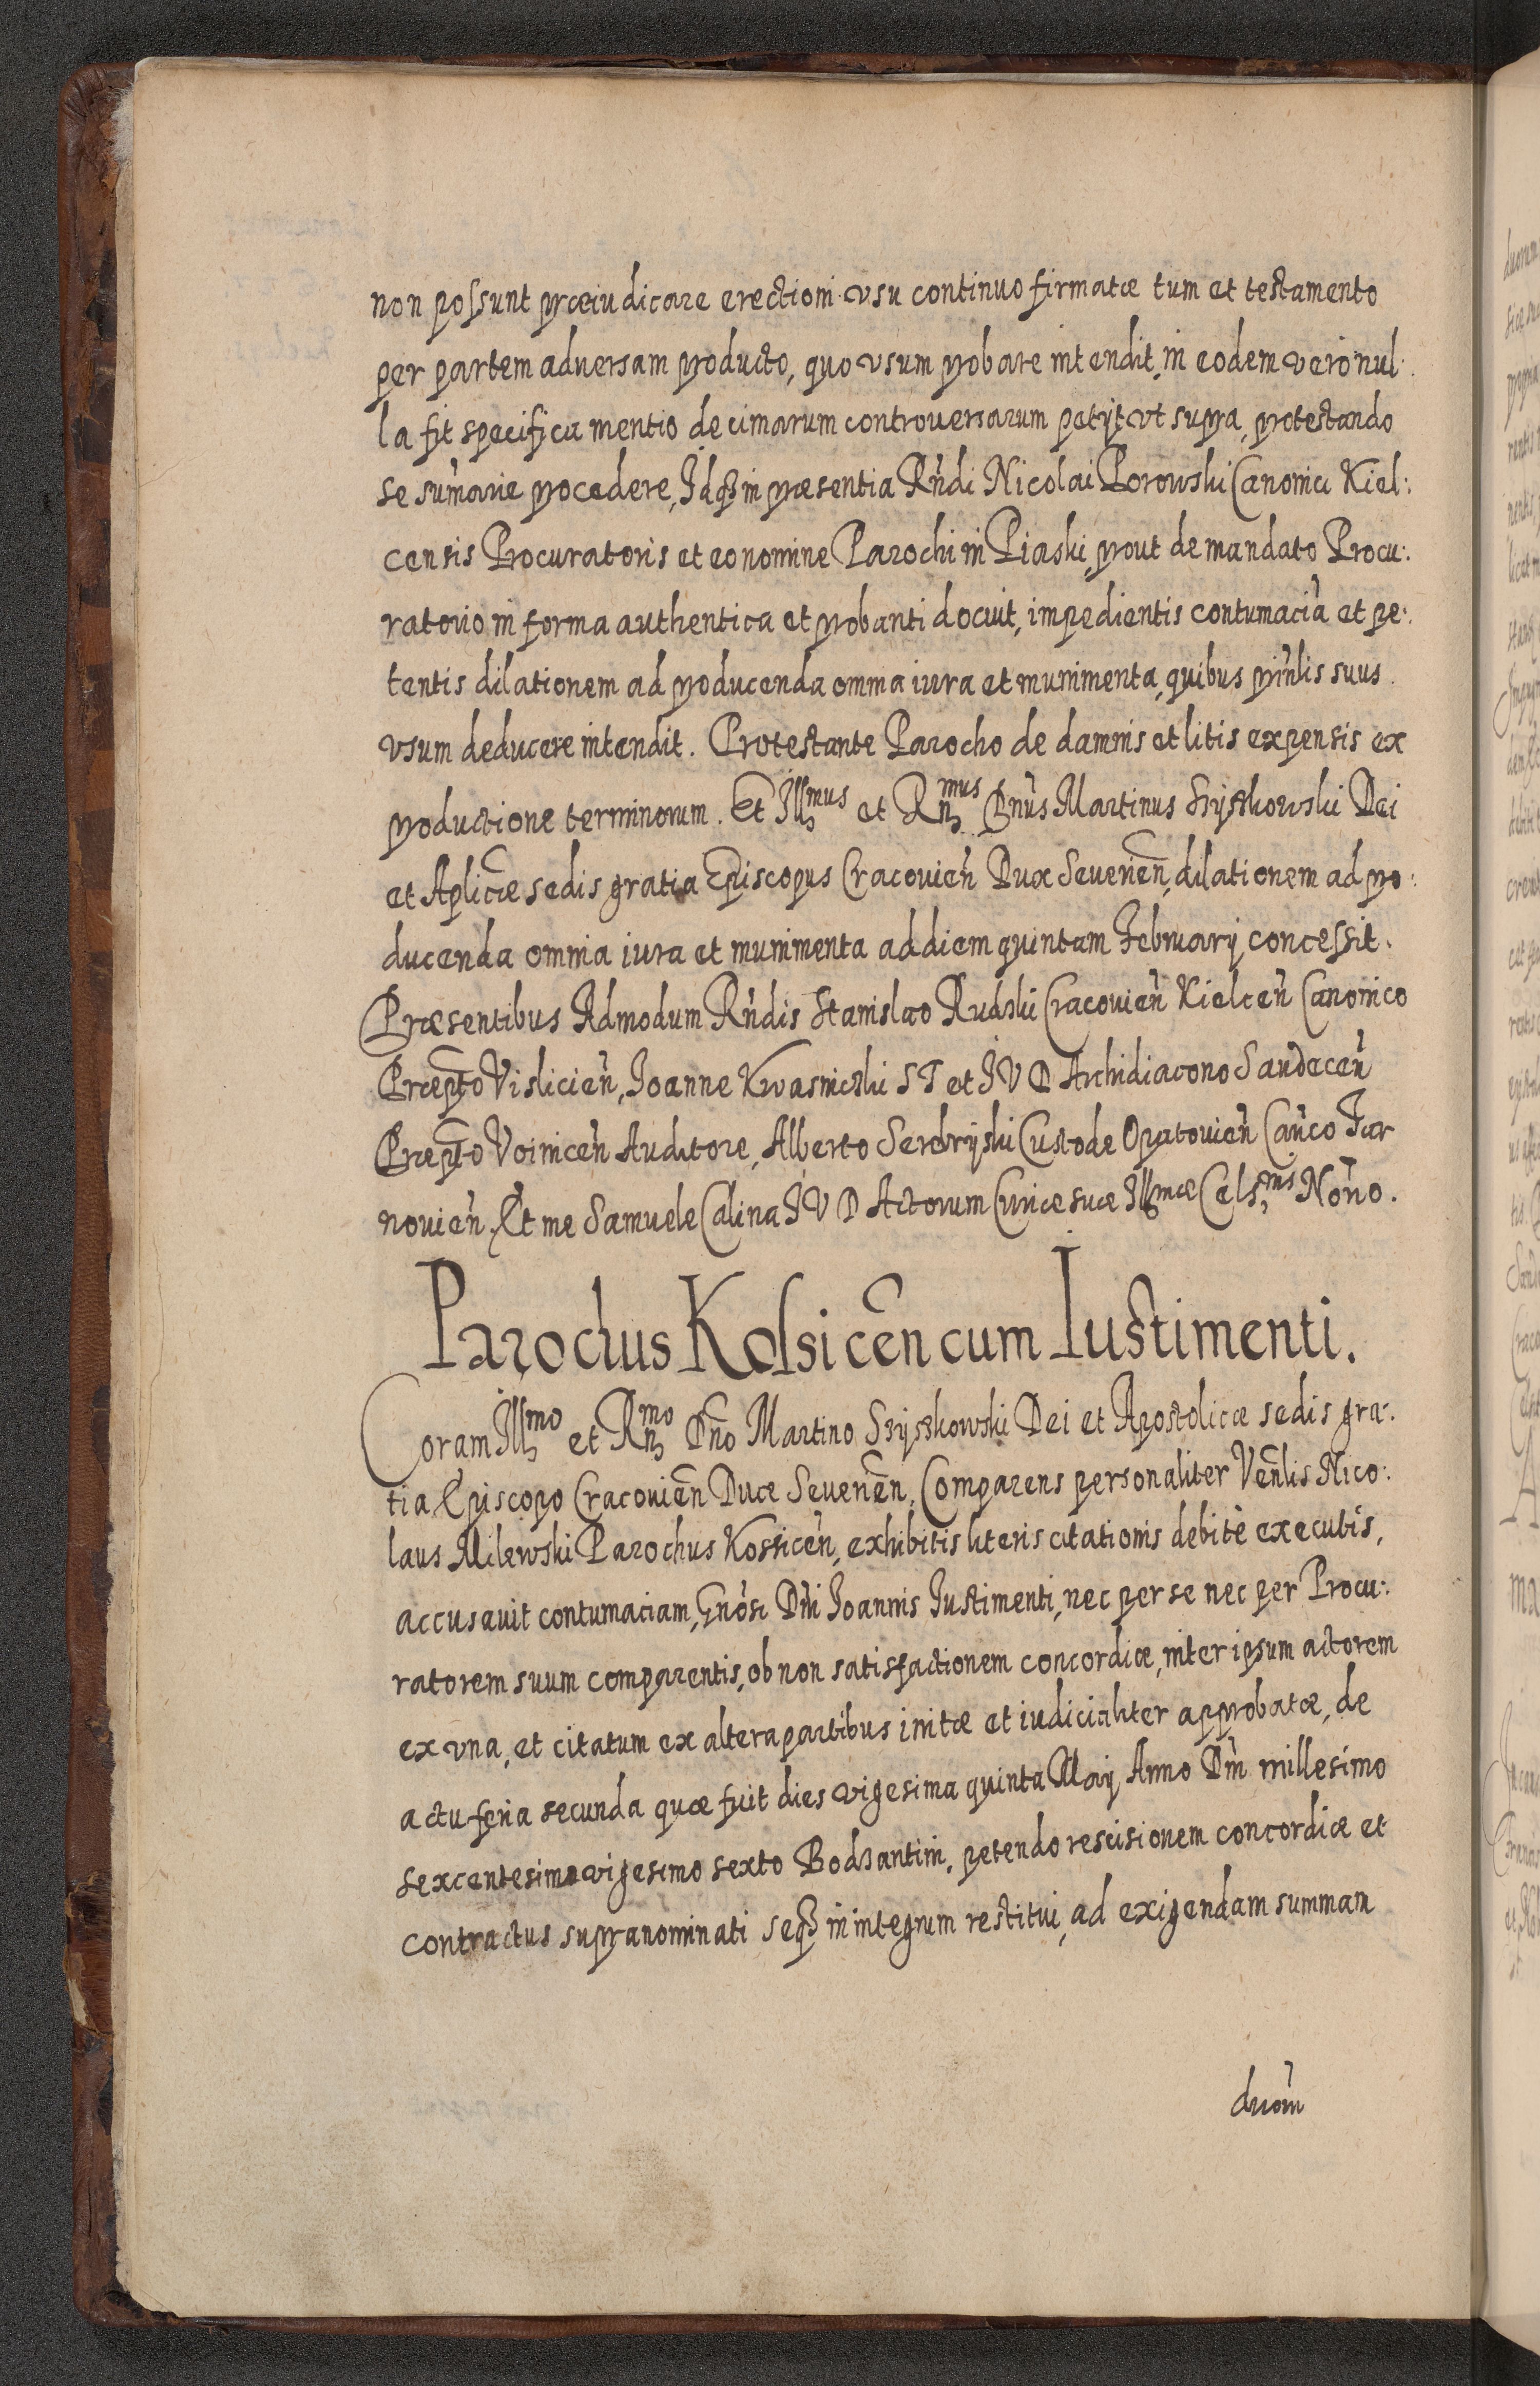 non possunt præiudicare erectioni vsu continuo firmatæ tum et testamento
per partem aduersam producto, quo vsum probare intendit, in eodem vero nul:
la fit specifica mentio decimarum controuersarum petijt vt supra, protestando
se sum̃arie procedere, Idq3 in præsentia Rñdi Nicolai Porowski Canonici Kiel:
censis Procuratoris et eo nomine Parochi in Piaski, prout de mandato Procu:
ratorio in forma authentica et probanti docuit, impedientis contumaciã et pe:
tentis dilationem ad producenda omnia iura et munimenta, quibus prinlis suus
vsum deducere intendit. Protestante Parocho de damnis et litis expensis ex
productione terminorum. Et Ill3mus et Rn3mus Dnus Martinus Szyszkowski Dei
et Aplicæ sedis gratia Episcopus Cracouien̄ Dux Seuerien̄, dilationem ad pro:
ducenda omnia iura et munimenta ad diem quintam February concessit.
Præsentibus Admodum Rñdis Stanislao Rudski Cracouien̄ Kielcen̄ Canonico
Præpto Vislicien̄, Joanne Kwasniczki S T et J V D Archidiacono Sandecen̄
Præpto Voinicen̄ Auditore, Alberto Serebryski Custode Opatouien̄ Can̄co Tar
nouien̄, Et me Samuele Calina J V D Actorum Curiæ suæ Ill3mæ Cels3nis No͂no.
Parochus Kossicen̄ cum Iustimenti.
Coram Ill3mo et Rn3mo Dño Martino Szyszkowski Dei et Apostolicæ sedis gra:
tia Episcopo Cracouien̄ Duce Seuerien̄, Comparens personaliter Ven̄lis Nico:
laus Milewski Parochus Kossicen̄, exhibitis literis citationis debitè executis,
accusauit contumaciam, Gnosi Dñi Joannis Justimenti, nec per se nec per Procu:
ratorem suum comparentis, ob non satisfactionem concordiæ, inter ipsum actorem
ex vna, et citatum ex altera partibus initæ et iudicialiter approbatæ, de
actu feria secunda quæ fuit dies vigesima quinta Maij Anno Dñi millesimo
sexcentesimo vigesimo sexto Bodzantini, petendo rescisionem concordiæ et
contractus supranominati seq3 in integrum restitui, ad exigendam summam
duom̃